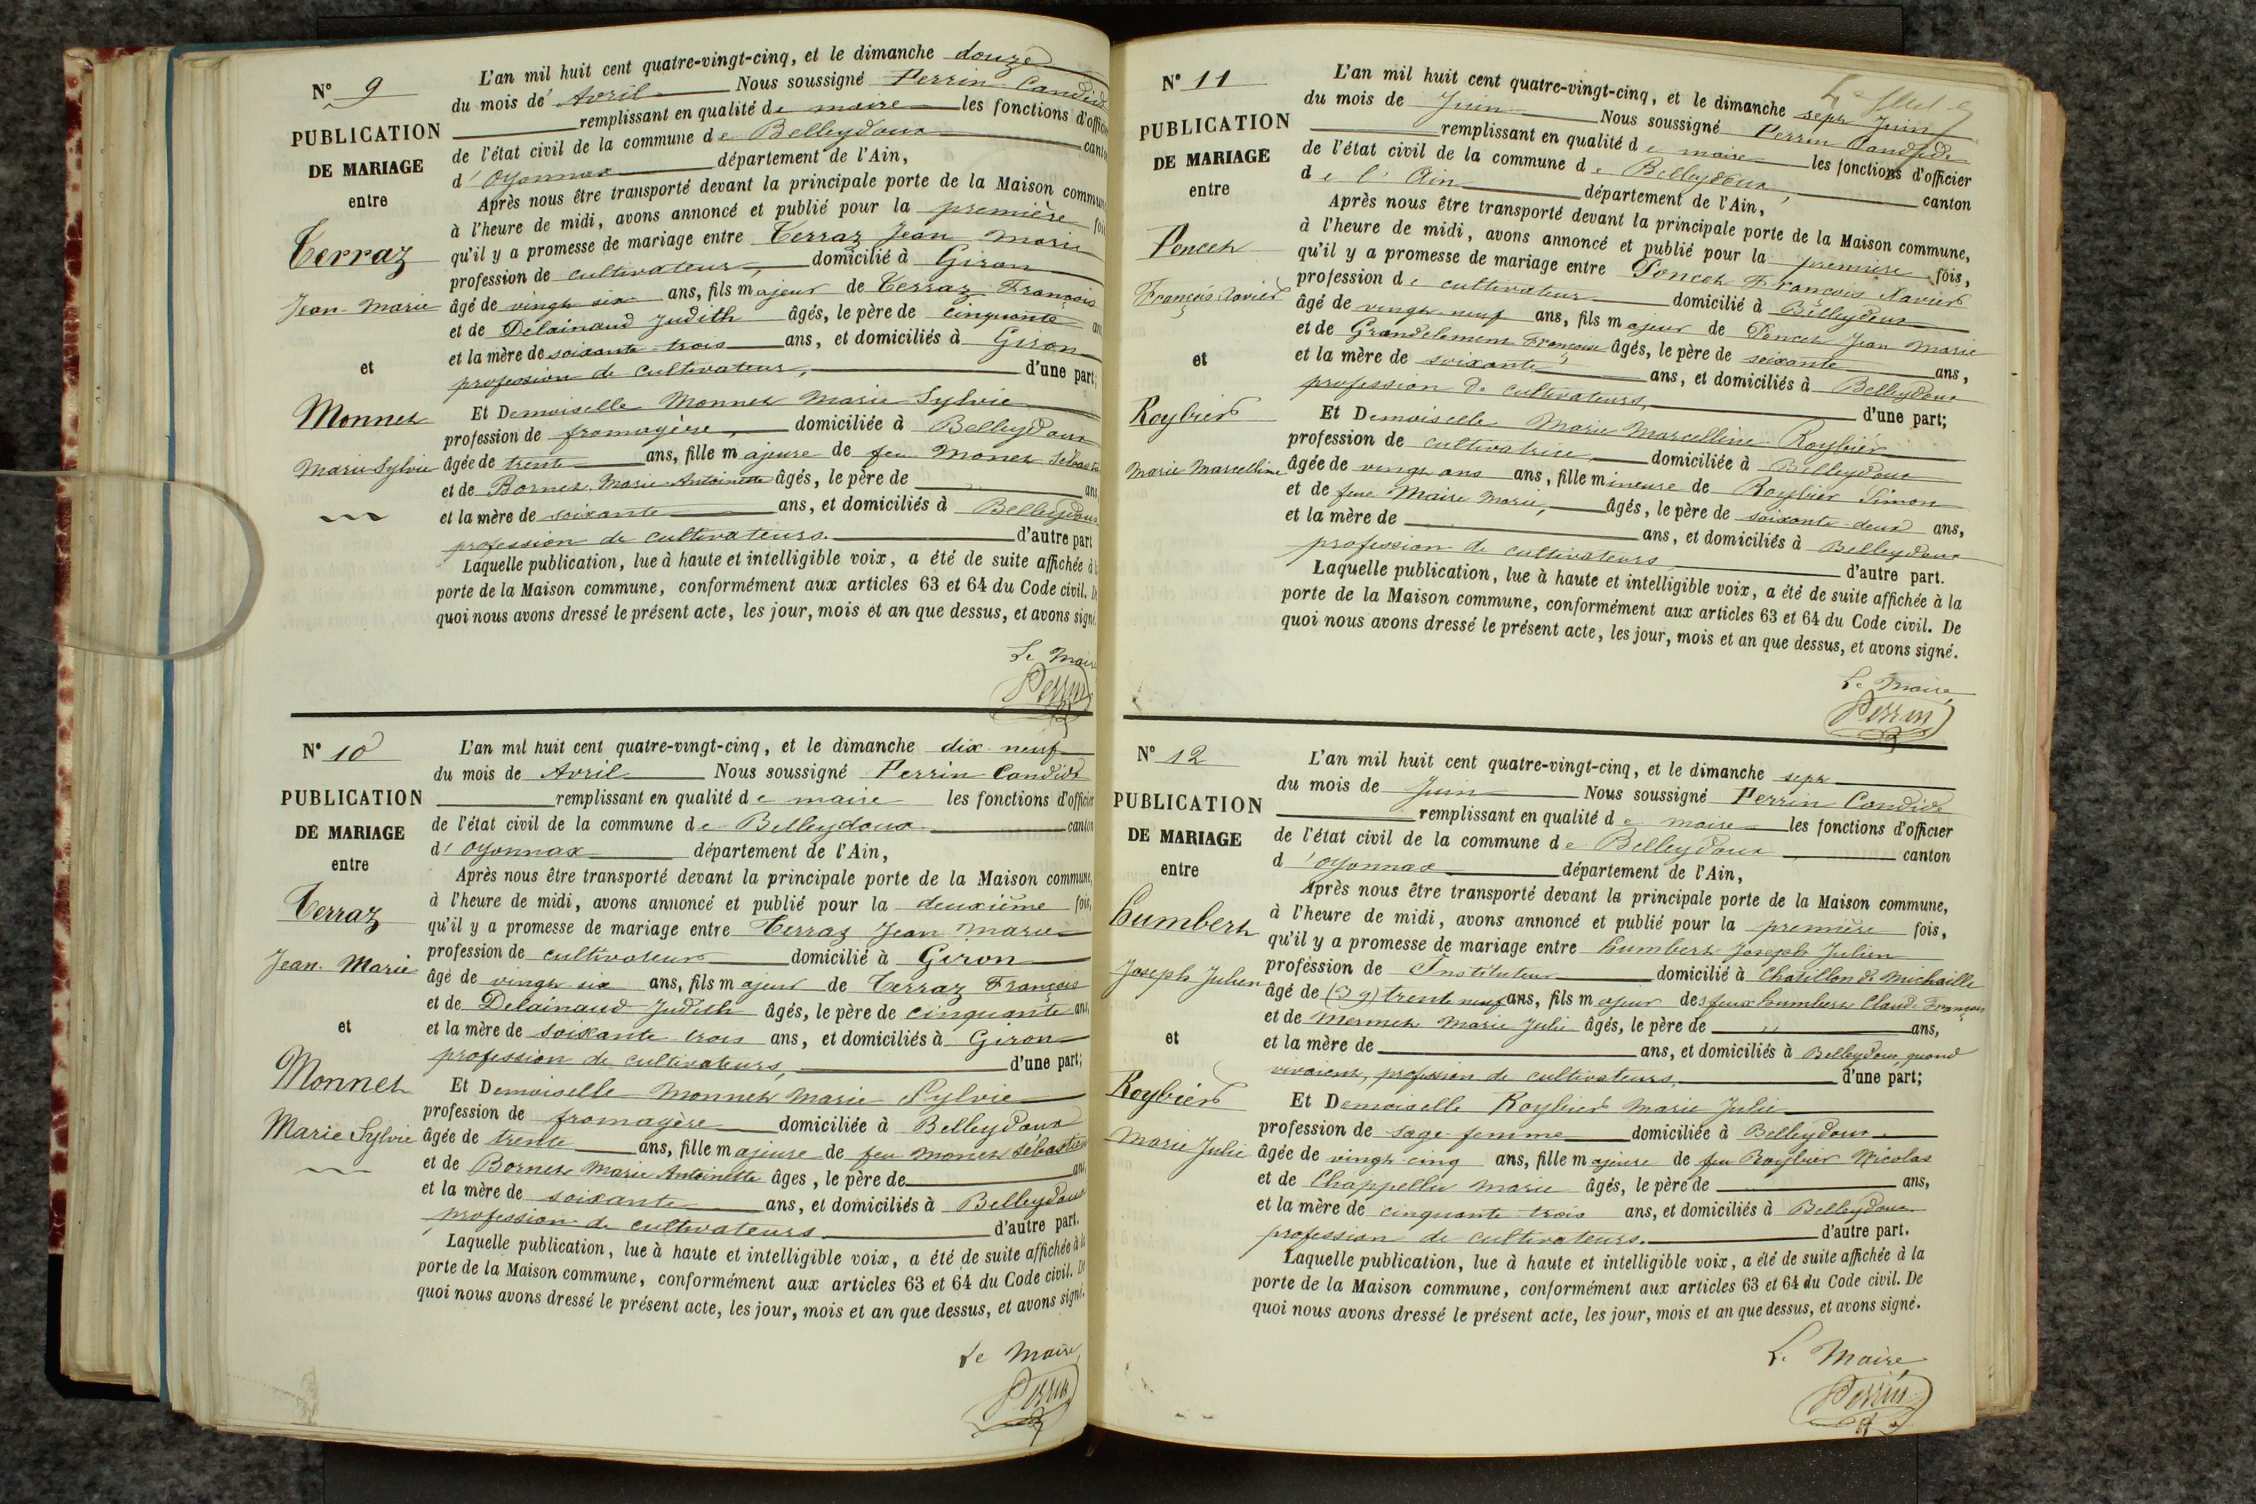 N° 9
PUBLICATION
DE MARIAGE
entre
Terraz
Jean-Marie
et
Monnet
Marie Sylvie
L'an mil huit cent quatre-vingt-cinq, et le dimanche douze
du mois de Avril Nous soussigné Perrin Candide
remplissant en qualité de maire les fonctions d'officier
de l'état civil de la commune de Belleydoux canton
d'Oyonnax département de l'Ain,
Après nous être transporté devant la principale porte de la Maison commune
à l'heure de midi, avons annoncé et publié pour la première fois
qu'il y a promesse de mariage entre Terraz Jean Marie
profession de cultivateur, domicilié à Giron
âgé de vingt six ans, fils majeur de Terraz François
et de Delainaud Judith âgés, le père de cinquante ans
et la mère de soixante-trois ans, et domiciliés à Giron
profession de cultivateur, d'une part;
Et Demoiselle Monnet Marie Sylvie
profession de fromagère, domiciliée à Belleydoux
âgée de trente ans, fille majeure de feu Monet Sébastien
et de Bornet Marie Antoinette âgés, le père de ans
et la mère de soixante ans, et domiciliés à Belleydoux
profession de cultivateurs. d'autre part
Laquelle publication, lue à haute et intelligible voix, a été de suite affichée à la
porte de la Maison commune, conformément aux articles 63 et 64 du Code civil. De
quoi nous avons dressé le présent acte, les jour, mois et an que dessus, et avons signé.
Le Maire
Perrin
N° 10
PUBLICATION
DE MARIAGE
entre
Terraz
Jean-Marie
et
Monnet
Marie Sylvie
L'an mil huit cent quatre-vingt-cinq, et le dimanche dix-neuf
du mois de Avril Nous soussigné Perrin Candide
remplissant en qualité de maire les fonctions d'officier
de l'état civil de la commune de Belleydoux canton
d'Oyonnax département de l'Ain,
Après nous être transporté devant la principale porte de la Maison commune,
à l'heure de midi, avons annoncé et publié pour la deuxième fois,
qu'il y a promesse de mariage entre Terraz Jean Marie
profession de cultivateur domicilié à Giron
âgé de vingt six ans, fils majeur de Terraz François
et de Delainaud Judith âgés, le père de cinquante ans,
et la mère de soixante trois ans, et domiciliés à Giron
profession de cultivateurs, d'une part;
Et Demoiselle Monnet Marie Sylvie
profession de fromagère domiciliée à Belleydoux
âgée de trente ans, fille majeure de feu Monet Sébastien
et de Bornet Marie Antoinette âges, le père de ans,
et la mère de soixante ans, et domiciliés à Belleydoux
profession de cultivateurs d'autre part.
Laquelle publication, lue à haute et intelligible voix, a été de suite affichée à la
porte de la Maison commune, conformément aux articles 63 et 64 du Code civil. De
quoi nous avons dressé le présent acte, les jour, mois et an que dessus, et avons signé.
Le Maire,
Perrin
N° 11
PUBLICATION
DE MARIAGE
entre
Poncet
François-Xavier
et
Roybier
Marie Marcelline
L'an mil huit cent quatre-vingt-cinq, et le dimanche sept Juin
du mois de Juin Nous soussigné Perrin Candide
remplissant en qualité de maire les fonctions d'officier
de l'état civil de la commune de Belleydoux, canton
de l'Ain département de l'Ain,
Après nous être transporté devant la principale porte de la Maison commune,
à l'heure de midi, avons annoncé et publié pour la première fois,
qu'il y a promesse de mariage entre Poncet François Xavier
profession de cultivateur domicilié à Belleydoux
âgé de vingt neuf ans, fils majeur de Poncet Jean Marie
et de Grandclement Françoise âgés, le père de soixante ans,
et la mère de soixante ans, et domiciliés à Belleydoux
profession de cultivateurs, d'une part;
Et Demoiselle Marie Marcelline Roybier
profession de cultivatrice domiciliée à Belleydoux
âgée de vingt ans ans, fille mineure de Roybier Simon
et de feue Maire Marie, âgés, le père de soixante-deux ans,
et la mère de ans, et domiciliés à Belleydoux
profession de cultivateurs, d'autre part.
Laquelle publication, lue à haute et intelligible voix, a été de suite affichée à la
porte de la Maison commune, conformément aux articles 63 et 64 du Code civil. De
quoi nous avons dressé le présent acte, les jour, mois et an que dessus, et avons signé.
Le Maire,
Perrin
N° 12
PUBLICATION
DE MARIAGE
entre
Humbert
Joseph Julien
et
Roybier
Marie Julie
L'an mil huit cent quatre-vingt-cinq, et le dimanche sept
du mois de Juin Nous soussigné Perrin Candide
remplissant en qualité de maire les fonctions d'officier
de l'état civil de la commune de Belleydoux canton
d'Oyonnax département de l'Ain,
Après nous être transporté devant la principale porte de la Maison commune,
à l'heure de midi, avons annoncé et publié pour la première fois,
qu'il y a promesse de mariage entre Humbert Joseph Julien
profession de Instituteur domicilié à Chatillon de Michaille
âgé de (39) trente neuf ans, fils majeur des feux Humbert Claude François
et de Mermet Marie Julie âgés, le père de " ans,
et la mère de ans, et domiciliés à Belleydoux quand
vivaient, profession de cultivateurs, d'une part;
Et Demoiselle Roybier Marie Julie
profession de sage-femme domiciliée à Belleydoux
âgée de vingt-cinq ans, fille majeure de feu Roybier Nicolas
et de Chappellu Marie âgés, le père de ans,
et la mère de cinquante-trois ans, et domiciliés à Belleydoux
profession de cultivateurs. d'autre part.
Laquelle publication, lue à haute et intelligible voix, a été de suite affichée à la
porte de la Maison commune, conformément aux articles 63 et 64 du Code civil. De
quoi nous avons dressé le présent acte, les jour, mois et an que dessus, et avons signé.
Le Maire,
Perrin